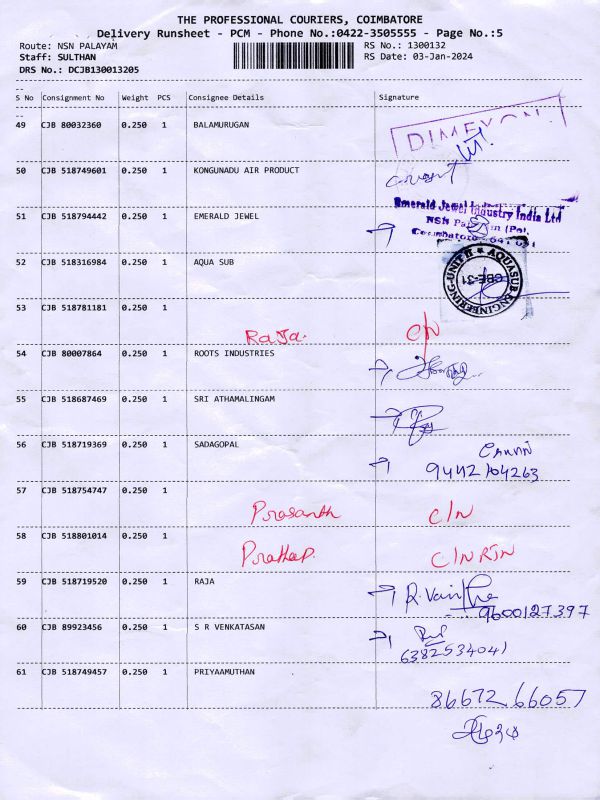 THE PROFESSIONAL COURIERS, COIMBATORE
Delivery Runsheet - PCM - Phone No.:0422-3505555 - Page No.:5
Route: NSN PALAYAM RS No.: 1300132
Staff: SULTHAN RS Date: 03-Jan-2024
DRS No.: DCJB130013205
--
S No Consignment No Weight PCS Consignee Details Signature
--
49 CJB 80032360 0.250 1 BALAMURUGAN
50 CJB 518749601 0.250 1 KONGUNADU AIR PRODUCT
Emerald Jewel Industry India Ltd
51 CJB 518794442 0.250 1 EMERALD JEWEL
NSN
Coimbatore - 641 031
52 CJB 518316984 0.250 1 AQUA SUB
AQUASUB ENGINEERING-UNIT II
CBE-31
53 CJB 518781181 0.250 1
Raja. C/N
54 CJB 80007864 0.250 1 ROOTS INDUSTRIES
55 CJB 518687469 0.250 1 SRI ATHAMALINGAM
56 CJB 518719369 0.250 1 SADAGOPAL
9442704263
57 CJB 518754747 0.250 1
Prasanth C/N
58 CJB 518801014 0.250 1
Prathap. C/N RTN
59 CJB 518719520 0.250 1 RAJA
9600127397
60 CJB 89923456 0.250 1 S R VENKATASAN
6382534041
61 CJB 518749457 0.250 1 PRIYAAMUTHAN
8667266057